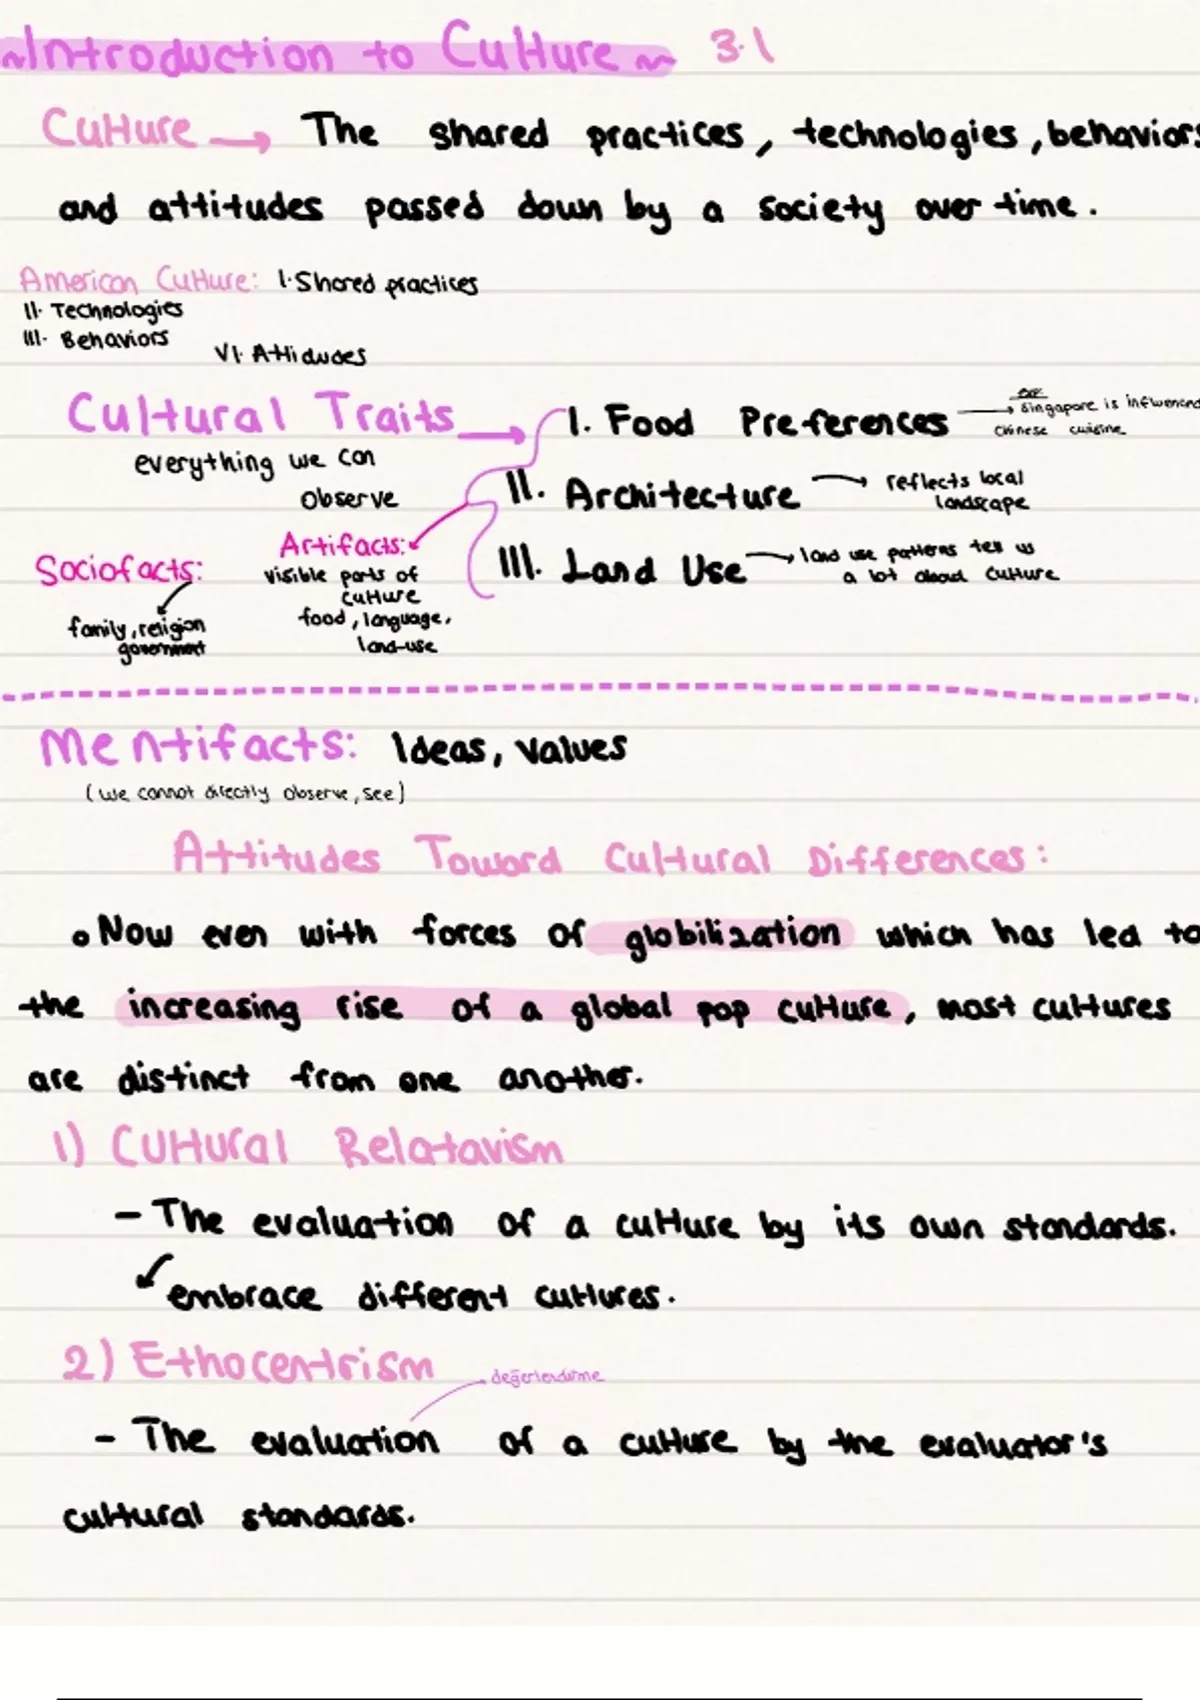 ~Introduction to Culture~ 3.1
Culture → The shared practices, technologies, behaviors
and attitudes passed down by a society over time.
American Culture: I. Shared practices
II. Technologies
III. Behaviors
VI. Attidudes
Cultural Traits → I. Food Preferences → ex: Singapore is influenced
chinese cuisine
everything we can
observe
II. Architecture → reflects local
landscape
III. Land Use → land use patterns tell us
a lot about culture
Artifacts:
visible parts of
culture
food, language,
land-use
Sociofacts:
family, religion
government
Mentifacts: Ideas, values
(we cannot directly observe, see)
Attitudes Toward Cultural Differences:
• Now even with forces of globilization which has led to
the increasing rise of a global pop culture, most cultures
are distinct from one another.
1) Cultural Relatavism
- The evaluation of a culture by its own standards.
embrace different cultures.
2) Ethocentrism
değerlendirme
- The evaluation of a culture by the evaluator's
cultural standards.